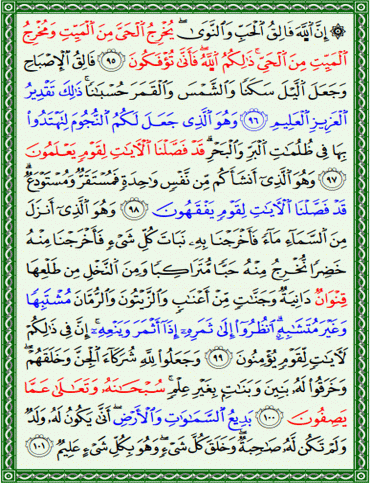 ۞ إِنَّ ٱللَّهَ فَالِقُ ٱلْحَبِّ وَٱلنَّوَىٰ ۖ يُخْرِجُ ٱلْحَىَّ مِنَ ٱلْمَيِّتِ وَمُخْرِجُ
ٱلْمَيِّتِ مِنَ ٱلْحَىِّ ۚ ذَٰلِكُمُ ٱللَّهُ ۖ فَأَنَّىٰ تُؤْفَكُونَ ﴿٩٥﴾ فَالِقُ ٱلْإِصْبَاحِ
وَجَعَلَ ٱلَّيْلَ سَكَنًا وَٱلشَّمْسَ وَٱلْقَمَرَ حُسْبَانًا ۚ ذَٰلِكَ تَقْدِيرُ
ٱلْعَزِيزِ ٱلْعَلِيمِ ﴿٩٦﴾ وَهُوَ ٱلَّذِى جَعَلَ لَكُمُ ٱلنُّجُومَ لِتَهْتَدُوا۟
بِهَا فِى ظُلُمَٰتِ ٱلْبَرِّ وَٱلْبَحْرِ ۗ قَدْ فَصَّلْنَا ٱلْءَايَٰتِ لِقَوْمٍ يَعْلَمُونَ
﴿٩٧﴾ وَهُوَ ٱلَّذِىٓ أَنشَأَكُم مِّن نَّفْسٍ وَٰحِدَةٍ فَمُسْتَقَرٌّ وَمُسْتَوْدَعٌ ۗ
قَدْ فَصَّلْنَا ٱلْءَايَٰتِ لِقَوْمٍ يَفْقَهُونَ ﴿٩٨﴾ وَهُوَ ٱلَّذِىٓ أَنزَلَ
مِنَ ٱلسَّمَآءِ مَآءً فَأَخْرَجْنَا بِهِۦ نَبَاتَ كُلِّ شَىْءٍ فَأَخْرَجْنَا مِنْهُ
خَضِرًا نُّخْرِجُ مِنْهُ حَبًّا مُّتَرَاكِبًا وَمِنَ ٱلنَّخْلِ مِن طَلْعِهَا
قِنْوَانٌ دَانِيَةٌ وَجَنَّٰتٍ مِّنْ أَعْنَابٍ وَٱلزَّيْتُونَ وَٱلرُّمَّانَ مُشْتَبِهًا
وَغَيْرَ مُتَشَٰبِهٍ ۗ ٱنظُرُوٓا۟ إِلَىٰ ثَمَرِهِۦٓ إِذَآ أَثْمَرَ وَيَنْعِهِۦٓ ۚ إِنَّ فِى ذَٰلِكُمْ
لَءَايَٰتٍ لِّقَوْمٍ يُؤْمِنُونَ ﴿٩٩﴾ وَجَعَلُوا۟ لِلَّهِ شُرَكَآءَ ٱلْجِنَّ وَخَلَقَهُمْ ۖ
وَخَرَقُوا۟ لَهُۥ بَنِينَ وَبَنَٰتٍۭ بِغَيْرِ عِلْمٍ ۚ سُبْحَٰنَهُۥ وَتَعَٰلَىٰ عَمَّا
يَصِفُونَ ﴿١٠٠﴾ بَدِيعُ ٱلسَّمَٰوَٰتِ وَٱلْأَرْضِ ۖ أَنَّىٰ يَكُونُ لَهُۥ وَلَدٌ
وَلَمْ تَكُن لَّهُۥ صَٰحِبَةٌ ۖ وَخَلَقَ كُلَّ شَىْءٍ ۖ وَهُوَ بِكُلِّ شَىْءٍ عَلِيمٌ ﴿١٠١﴾